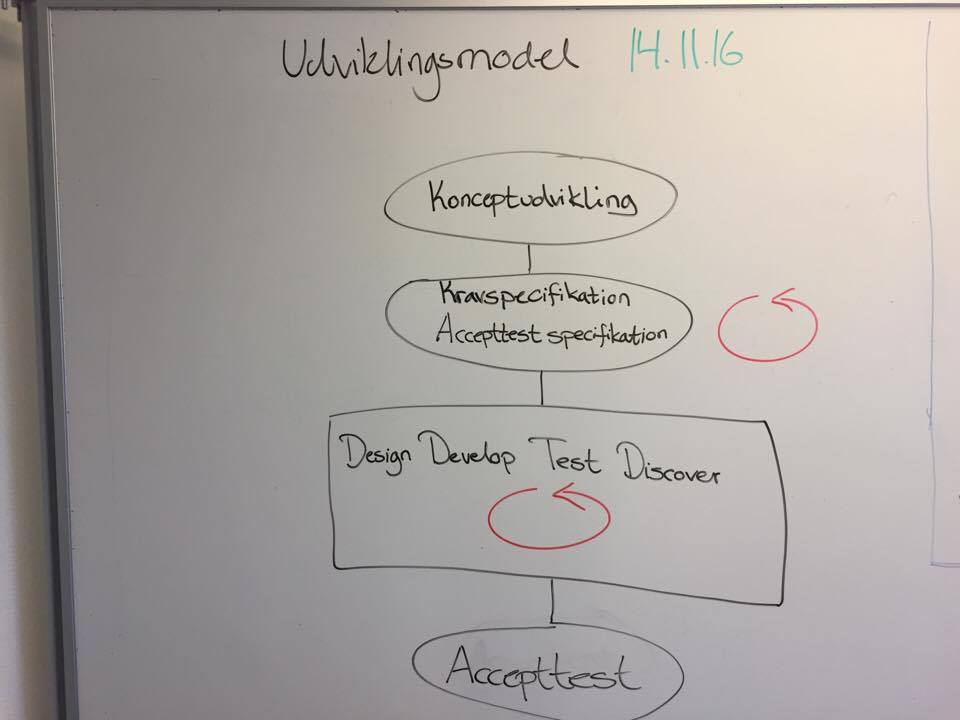 Udviklingsmodel 14.11.16
Konceptudvikling
Kravspecifikation
Accepttest specifikation
Design Develop Test Discover
Accepttest